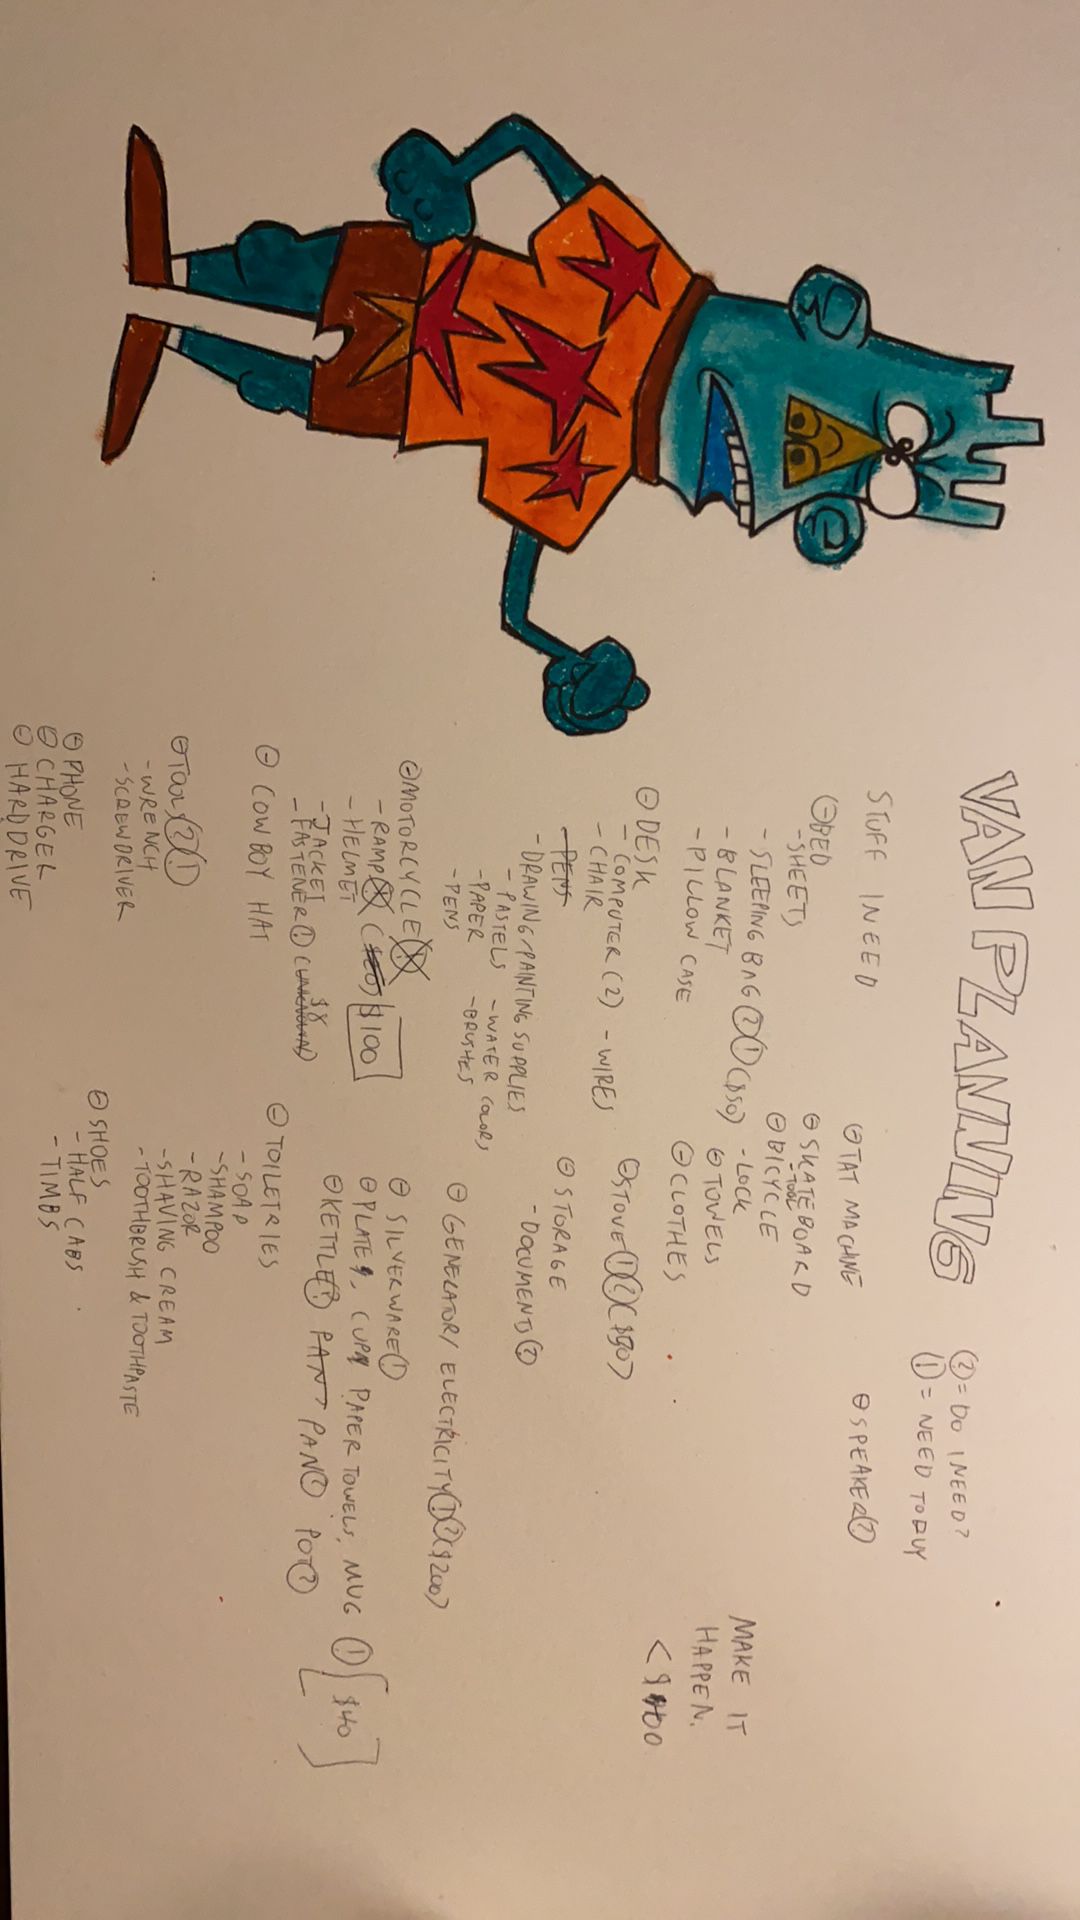 VAN PLANNING
②= DO I NEED?
①= NEED TODAY
STUFF I NEED
⊖BED
-SHEETS
-SLEEPING BAG②① ($50)
-BLANKET
-PILLOW CASE
⊖DESK
-COMPUTER (2) -WIRES
-CHAIR
-PENS
-DRAWING/PAINTING SUPPLIES
-PASTELS -WATER COLORS
-PAPER -BRUSHES
-PENS
⊖MOTORCYCLE
-RAMP $100
-HELMET
-JACKET
-FASTENER① $8 (UNKNOWN)
⊖ COWBOY HAT
⊖TOOLS②①
-WRENCH
-SCREWDRIVER
⊖ PHONE
⊖ CHARGER
⊖ HARD DRIVE
⊖TAT MACHINE
⊖SKATEBOARD
-TOOL
⊖BICYCLE
-LOCK
⊖TOWELS
⊖CLOTHES
⊖STOVE①② ($50)
⊖ STORAGE
-DOCUMENTS②
⊖ GENERATOR/ ELECTRICITY①②($200)
⊖ SILVERWARE①
⊖PLATES, CUPS PAPER TOWELS, MUG ① [$40]
⊖KETTLE① PAN? PAN② POT②
⊖ TOILETRIES
-SOAP
-SHAMPOO
-RAZOR
-SHAVING CREAM
-TOOTHBRUSH & TOOTHPASTE
⊖ SHOES
-HALF CABS
-TIMBS
⊖SPEAKER②
MAKE IT
HAPPEN.